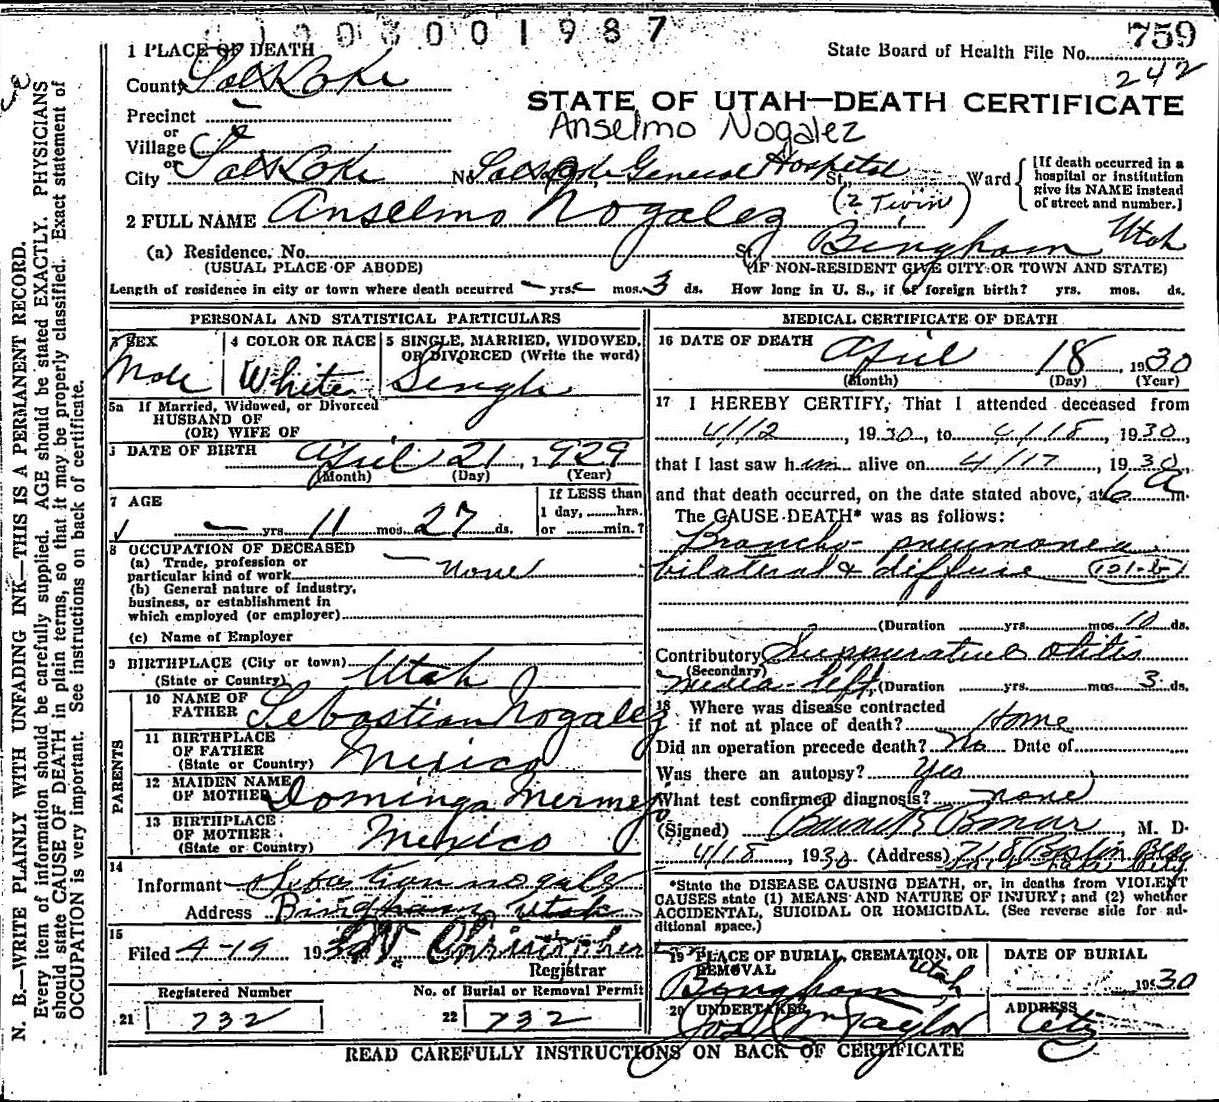 1003001987
759
State Board of Health File No.
242
1 PLACE OF DEATH
County Salt Lake
STATE OF UTAH—DEATH CERTIFICATE
Precinct
Anselmo Nogalez
or
Village
or
City Salt Lake No. Salt Lake General Hospital St., Ward
[If death occurred in a hospital or institution give its NAME instead of street and number.]
2 FULL NAME Anselmo Nogalez (2 Twin)
(a) Residence. No. St. Bingham Utah
(USUAL PLACE OF ABODE) (IF NON-RESIDENT GIVE CITY OR TOWN AND STATE)
Length of residence in city or town where death occurred — yrs. — mos. 3 ds. How long in U. S., if of foreign birth? yrs. mos. ds.
PERSONAL AND STATISTICAL PARTICULARS
3 SEX 4 COLOR OR RACE 5 SINGLE, MARRIED, WIDOWED, OR DIVORCED (Write the word)
Male White Single
5a If Married, Widowed, or Divorced
HUSBAND OF
(OR) WIFE OF
DATE OF BIRTH April 21, 1929
(Month) (Day) (Year)
7 AGE
If LESS than
1 day, hrs.
— yrs. 11 mos. 27 ds. or min.?
8 OCCUPATION OF DECEASED
(a) Trade, profession or
particular kind of work None
(b) General nature of industry,
business, or establishment in
which employed (or employer)
(c) Name of Employer
9 BIRTHPLACE (City or town)
(State or Country) Utah
PARENTS
10 NAME OF FATHER Sebastian Nogalez
11 BIRTHPLACE OF FATHER
(State or Country) Mexico
12 MAIDEN NAME OF MOTHER Dominga Mermejo
13 BIRTHPLACE OF MOTHER
(State or Country) Mexico
14
Informant Sebastion nogales
Address Bingham Utah
15
Filed 4-19 1930 Christopher
Registrar
Registered Number No. of Burial or Removal Permit
21 732 22 732
MEDICAL CERTIFICATE OF DEATH
16 DATE OF DEATH April 18, 1930
(Month) (Day) (Year)
17 I HEREBY CERTIFY, That I attended deceased from
4/12, 1930, to 4/18, 1930,
that I last saw him alive on 4/17, 1930,
and that death occurred, on the date stated above, at 6 A m.
The CAUSE DEATH* was as follows:
Broncho-pneumonia
bilateral & diffuse
(Duration yrs. mos. 10 ds.
Contributory Suppurative Otitis
(Secondary)
Media- left (Duration yrs. mos. 3 ds.
18 Where was disease contracted
if not at place of death? Home
Did an operation precede death? No Date of
Was there an autopsy? Yes
What test confirmed diagnosis? none
(Signed) M. D.
4/18, 1930 (Address) 718 Boston Bldg
Salt Lake City
*State the DISEASE CAUSING DEATH, or, in deaths from VIOLENT
CAUSES state (1) MEANS AND NATURE OF INJURY; and (2) whether
ACCIDENTAL, SUICIDAL OR HOMICIDAL. (See reverse side for ad-
ditional space.)
19 PLACE OF BURIAL, CREMATION, OR REMOVAL DATE OF BURIAL
Bingham Utah 1930
20 UNDERTAKER ADDRESS
Taylor City
READ CAREFULLY INSTRUCTIONS ON BACK OF CERTIFICATE
N. B.—WRITE PLAINLY WITH UNFADING INK—THIS IS A PERMANENT RECORD.
Every item of information should be carefully supplied. AGE should be stated EXACTLY. PHYSICIANS
should state CAUSE OF DEATH in plain terms, so that it may be properly classified. Exact statement of
OCCUPATION is very important. See instructions on back of certificate.